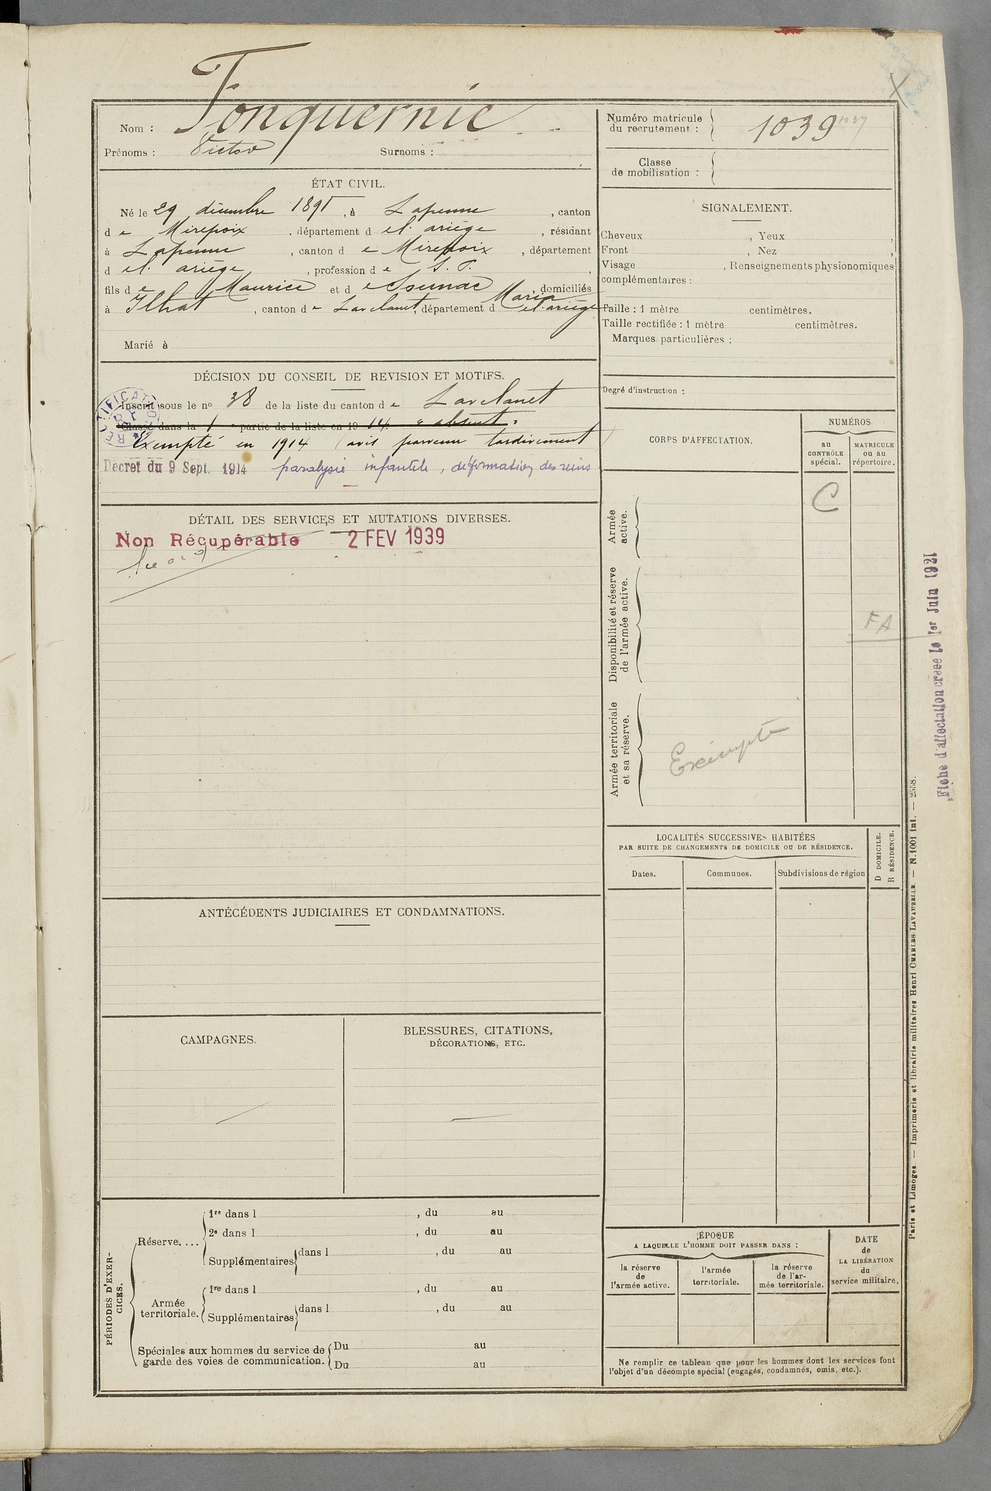 Nom : Fonquernie
Prénoms : Victor Surnoms :
ÉTAT CIVIL.
Né le 29 décembre 1891, à Lapenne, canton
de Mirepoix, département de l'ariège, résidant
à Lapenne, canton de Mirepoix, département
de l'ariège, profession de S. P.
fils de Maurice et de Maria, domiciliés
à Ilhat, canton de Lavelanet, département de l'ariège
Marié à
DÉCISION DU CONSEIL DE REVISION ET MOTIFS.
Inscrit sous le n° 38 de la liste du canton de Lavelanet
Classé dans la 1 partie de la liste en 1914. absent.
Exempté en 1914 (avis parvenu tardivement
Décret du 9 Sept. 1914 paralysie infantile, déformation des reins
DÉTAIL DES SERVICES ET MUTATIONS DIVERSES.
Non Récupérable 2 FEV 1939
ANTÉCÉDENTS JUDICIAIRES ET CONDAMNATIONS.
CAMPAGNES.
BLESSURES, CITATIONS,
DÉCORATIONS, ETC.
PÉRIODES D'EXERCICES.
Réserve....
1re dans l , du au
2e dans l , du au
Supplémentaires dans l , du au
Armée
territoriale.
1re dans l , du au
Supplémentaires dans l , du au
Spéciales aux hommes du service de
garde des voies de communication.
Du au
Du au
Numéro matricule
du recrutement : 1039
Classe
de mobilisation :
SIGNALEMENT.
Cheveux , Yeux ,
Front , Nez ,
Visage , Renseignements physionomiques
complémentaires :
Taille : 1 mètre centimètres.
Taille rectifiée : 1 mètre centimètres.
Marques particulières :
Degré d'instruction :
CORPS D'AFFECTATION.
NUMÉROS
au
CONTRÔLE
spécial.
MATRICULE
ou au
répertoire.
Armée
active.
C
Disponibilité et réserve
de l'armée active.
FA
Armée territoriale
et sa réserve.
Exempté
LOCALITÉS SUCCESSIVES HABITÉES
PAR SUITE DE CHANGEMENTS DE DOMICILE OU DE RÉSIDENCE.
Dates.
Communes.
Subdivisions de région
D DOMICILE.
R RÉSIDENCE.
ÉPOQUE
A LAQUELLE L'HOMME DOIT PASSER DANS :
la réserve
de
l'armée active.
l'armée
territoriale.
la réserve
de l'ar-
mée territoriale.
DATE
de
LA LIBÉRATION
du
service militaire.
Ne remplir ce tableau que pour les hommes dont les services font
l'objet d'un décompte spécial (engagés, condamnés, omis, etc.).
Paris et Limoges. — Imprimerie et librairie militaires Henri CHARLES-LAVAUZELLE. — N. 1001 int. — 2558.
Fiche d'affectation créée le 1er Juin 1921